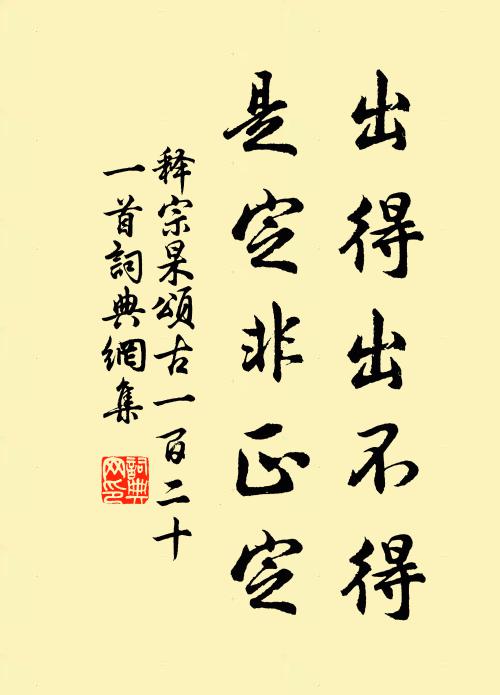 出得出不得
是定非正定
释宗杲頌古一百二十
一首詞典網集
詞典網印